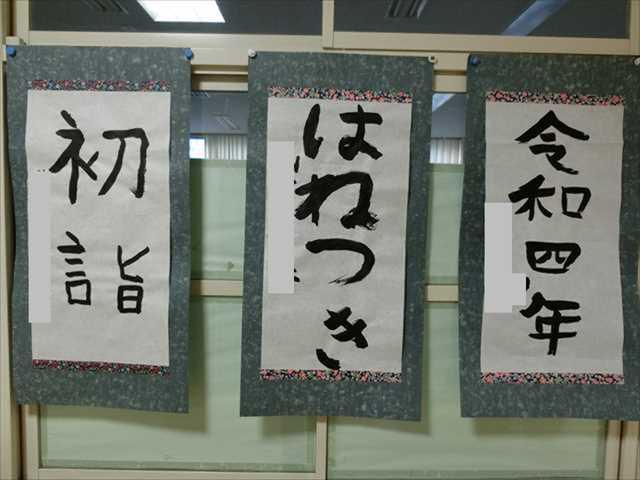 令和四年
はねつき
初詣